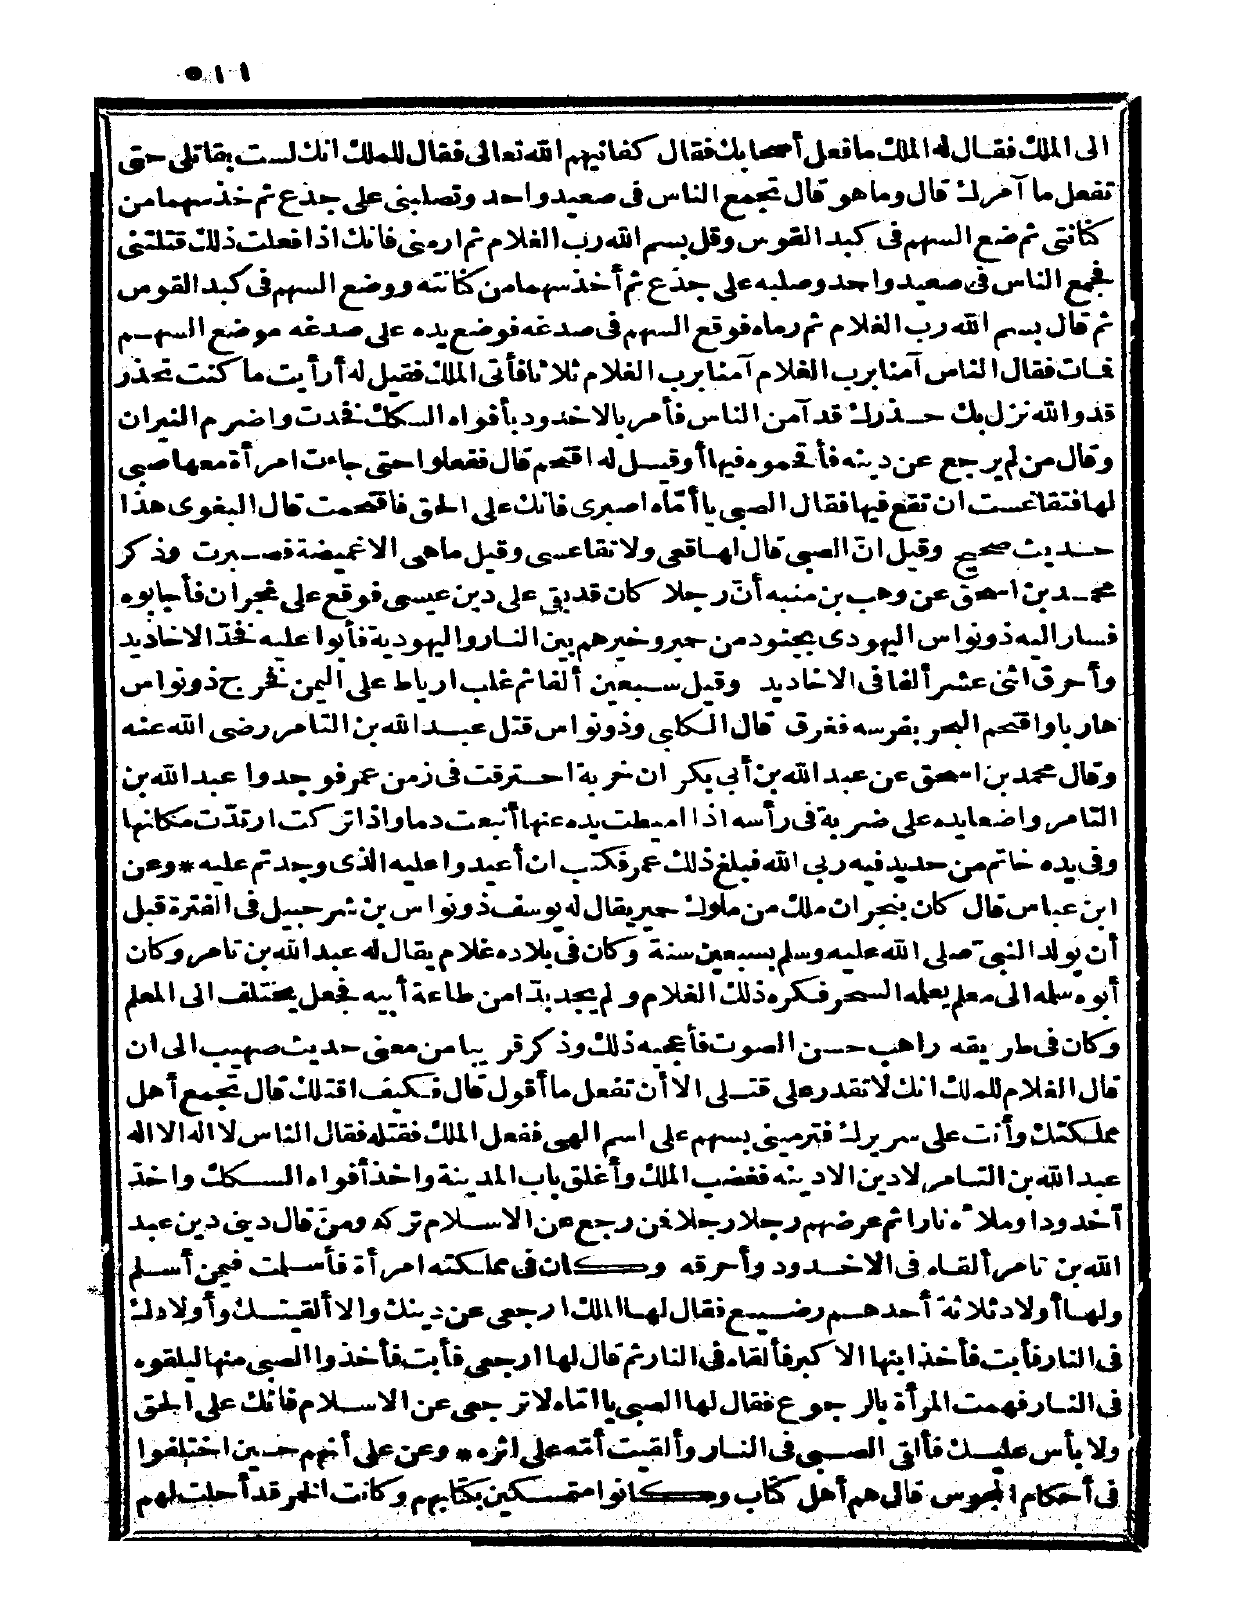 ٥١١
الى الملك فقال له الملك ما فعل أصحابك فقال كفانيهم الله تعالى فقال للملك انك لست بقاتلى حتى
تفعل ما آمرك قال وما هو قال تجمع الناس فى صعيد واحد وتصلبنى على جذع ثم خذ سهما من
كنانتى ثم ضع السهم فى كبد القوس وقل بسم الله رب الغلام ثم ارمنى فانك اذا فعلت ذلك قتلتنى
فجمع الناس فى صعيد واحد وصلبه على جذع ثم أخذ سهما من كنانته ووضع السهم فى كبد القوس
ثم قال بسم الله رب الغلام ثم رماه فوقع السهم فى صدغه فوضع يده على صدغه موضع السهم
فمات فقال الناس آمنا برب الغلام آمنا برب الغلام ثلاثا فأتى الملك فقيل له أرأيت ما كنت تحذر
قد والله نزل بك حذرك قد آمن الناس فأمر بالاخدود بأفواه السكك فخدت واضرم النيران
وقال من لم يرجع عن دينه فأقحموه فيها أو قيل له اقتحم قال ففعلوا حتى جاءت امرأة معها صبى
لها فتقاعست ان تقع فيها فقال الصبى يا أمّاه اصبرى فانك على الحق فاقتحمت قال البغوى هذا
حديث صحيح وقيل انّ الصبى قال لها قعى ولا تقاعسى وقيل ما هى الا غميضة فصبرت وذكر
محمد بن اسحق عن وهب بن منبه أنّ رجلا كان قد بقى على دين عيسى فوقع على نجران فأجابوه
فسار اليه ذو نواس اليهودى بجنود من حمير وخيرهم بين النار واليهودية فأبوا عليه فخدّ الاخاديد
وأحرق اثنى عشر ألفا فى الاخاديد وقيل سبعين ألفا ثم غلب ارياط على اليمن فخرج ذو نواس
هاربا واقتحم البحر بفرسه فغرق قال الكلبى وذو نواس قتل عبد الله بن التامر رضى الله عنه
وقال محمد بن اسحق عن عبد الله بن أبي بكر ان خربة احترقت فى زمن عمر فوجدوا عبد الله بن
التامر واضعا يده على ضربة فى رأسه اذا اميطت يده عنها أنبعت دما واذا تركت ارتدّت مكانها
وفى يده خاتم من حديد فيه ربى الله فبلغ ذلك عمر فكتب ان أعيدوا عليه الذى وجدتم عليه * وعن
ابن عباس قال كان بنجران ملك من ملوك حمير يقال له يوسف ذو نواس بن شرحبيل فى الفترة قبل
أن يولد النبىّ صلى الله عليه وسلم بسبعين سنة وكان فى بلاده غلام يقال له عبد الله بن تامر وكان
أبوه سلمه الى معلم يعلمه السحر فكره ذلك الغلام ولم يجد بدّا من طاعة أبيه فجعل يختلف الى المعلم
وكان فى طريقه راهب حسن الصوت فأعجبه ذلك وذكر قريبا من معنى حديث صهيب الى ان
قال الغلام للملك انك لا تقدر على قتلى الا أن تفعل ما أقول قال فكيف اقتلك قال تجمع أهل
مملكتك وأنت على سريرك فترمينى بسهم على اسم الهى ففعل الملك فقتله فقال الناس لا اله الا اله
عبد الله بن التامر لا دين الا دينه فغضب الملك وأغلق باب المدينة واخذ أفواه السكك واخذ
أخدودا وملأه نارا ثم عرضهم رجلا رجلا فمن رجع عن الاسلام تركه ومن قال دينى دين عبد
الله بن تامر ألقاه فى الاخدود وأحرقه وكان فى مملكته امرأة فأسلمت فيمن أسلم
ولها أولاد ثلاثة أحدهم رضيع فقال لها الملك ارجعى عن دينك والا ألقيتك وأولادك
فى النار فأبت فأخذ ابنها الاكبر فألقاه فى النار ثم قال لها ارجعى فأبت فأخذوا الصبى منها ليلقوه
فى النار فهمت المرأة بالرجوع فقال لها الصبى يا امّاه لا ترجعى عن الاسلام فانك على الحق
ولا بأس عليك فألقى الصبى فى النار وألقيت أمّه على اثره * وعن على أنهم حين اختلفوا
فى أحكام المجوس قال هم أهل كتاب وكانوا متمسكين بكتابهم وكانت الخمر قد أحلت لهم